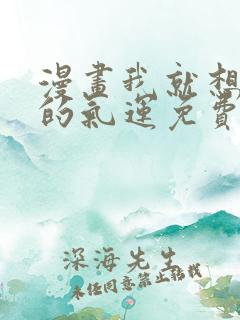 漫畫我就想
的氣運免費
深海先生
未經同意禁止轉載